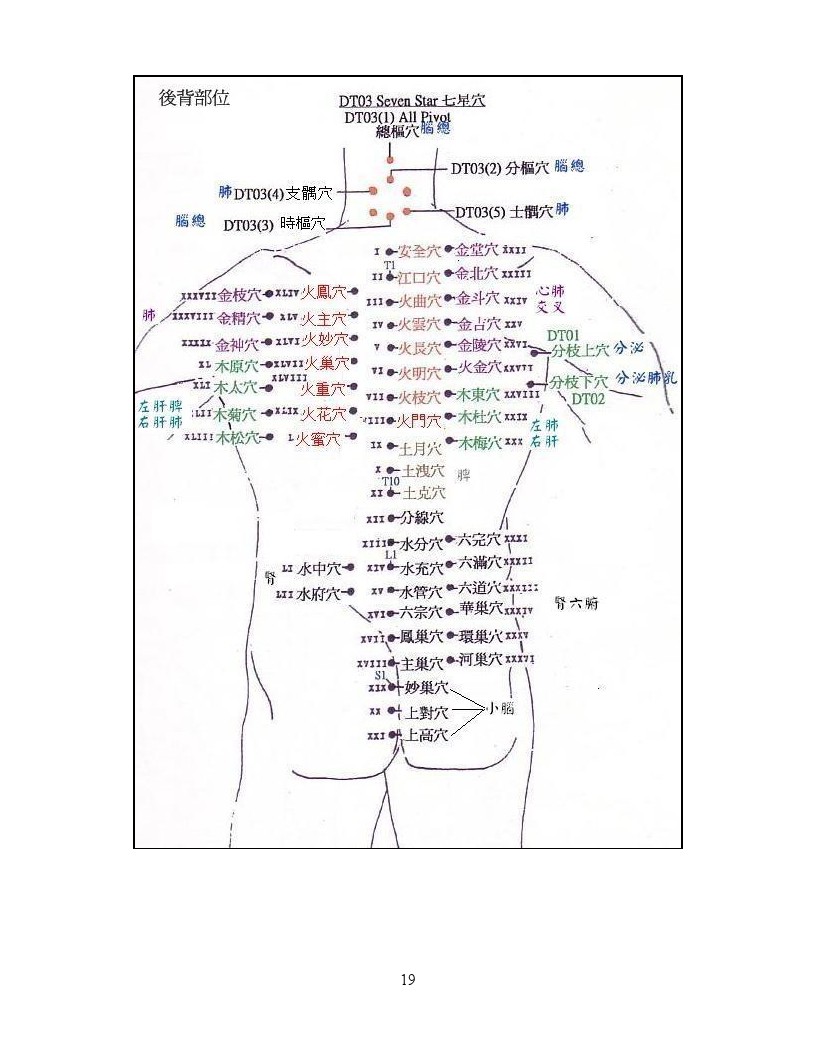 後背部位
DT03 Seven Star 七星穴
DT03(1) All Pivot
總樞穴 腦總
DT03(2) 分樞穴 腦總
肺 DT03(4) 支髃穴
腦總 DT03(3) 時樞穴
DT03(5) 士髃穴 肺
I 安全穴 金堂穴 XXII
T1
II 江口穴 金北穴 XXIII
XXXVII 金枝穴 XLIV 火鳳穴 III 火曲穴 金斗穴 XXIV 心肺
交叉
肺 XXXVIII 金精穴 XLV 火主穴 IV 火雲穴 金吉穴 XXV
XXXIX 金神穴 XLVI 火妙穴 V 火長穴 金陵穴 XXVI
DT01
分枝上穴 分泌
XL 木原穴 XLVII 火巢穴 VI 火明穴 火金穴 XXVII
XLI 木太穴 XLVIII 火重穴 VII 火枝穴 木東穴 XXVIII
分枝下穴 分泌肺乳
DT02
左肝脾
右肝肺
XLII 木菊穴 XLIX 火花穴 VIII 火門穴 木杜穴 XXIX
左肺
右肝
XLIII 木松穴 L 火蜜穴 IX 土月穴 木梅穴 XXX
X 土洩穴 脾
T10
XI 土克穴
XII 分線穴
XIII 水分穴 六完穴 XXXI
L1
腎 LI 水中穴 XIV 水充穴 六滿穴 XXXII
LII 水府穴 XV 水管穴 六道穴 XXXIII
腎六腑
XVI 六宗穴 華巢穴 XXXIV
XVII 鳳巢穴 環巢穴 XXXV
XVIII 主巢穴 河巢穴 XXXVI
S1
XIX 妙巢穴
XX 上對穴 小腦
XXI 上高穴
19